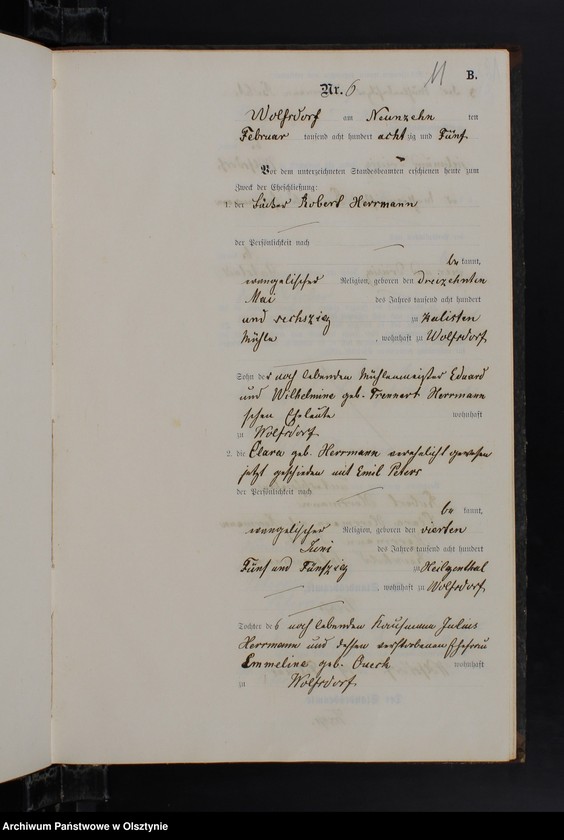 11 B.
Nr. 6
Wolfsdorf am Neunzehn ten
Februar tausend acht hundert achtzig und Fünf
Vor dem unterzeichneten Standesbeamten erschienen heute zum
Zweck der Eheschließung:
1. der Bäcker Robert Herrmann
der Persönlichkeit nach
be kannt,
evangelischer Religion, geboren den dreizehnten
Mai des Jahres tausend acht hundert
und sechszig zu Kalisten
Mühle , wohnhaft zu Wolfsdorf
Sohn der noch lebenden Mühlenmeister Eduard
und Wilhelmine geb. Trennert Herrmann
schen Eheleute wohnhaft
zu Wolfsdorf
2. die Clara geb. Herrmann verehelicht gewesen
jetzt geschieden mit Emil Peters
der Persönlichkeit nach
be kannt,
evangelischer Religion, geboren den vierten
Juni des Jahres tausend acht hundert
Fünf und Fünfzig zu Heiligenthal
, wohnhaft zu Wolfsdorf
Tochter des noch lebenden Kaufmann Julius
Herrmann und dessen verstorbenen Ehefrau
Emmeline geb. wohnhaft
zu Wolfsdorf
Archiwum Państwowe w Olsztynie